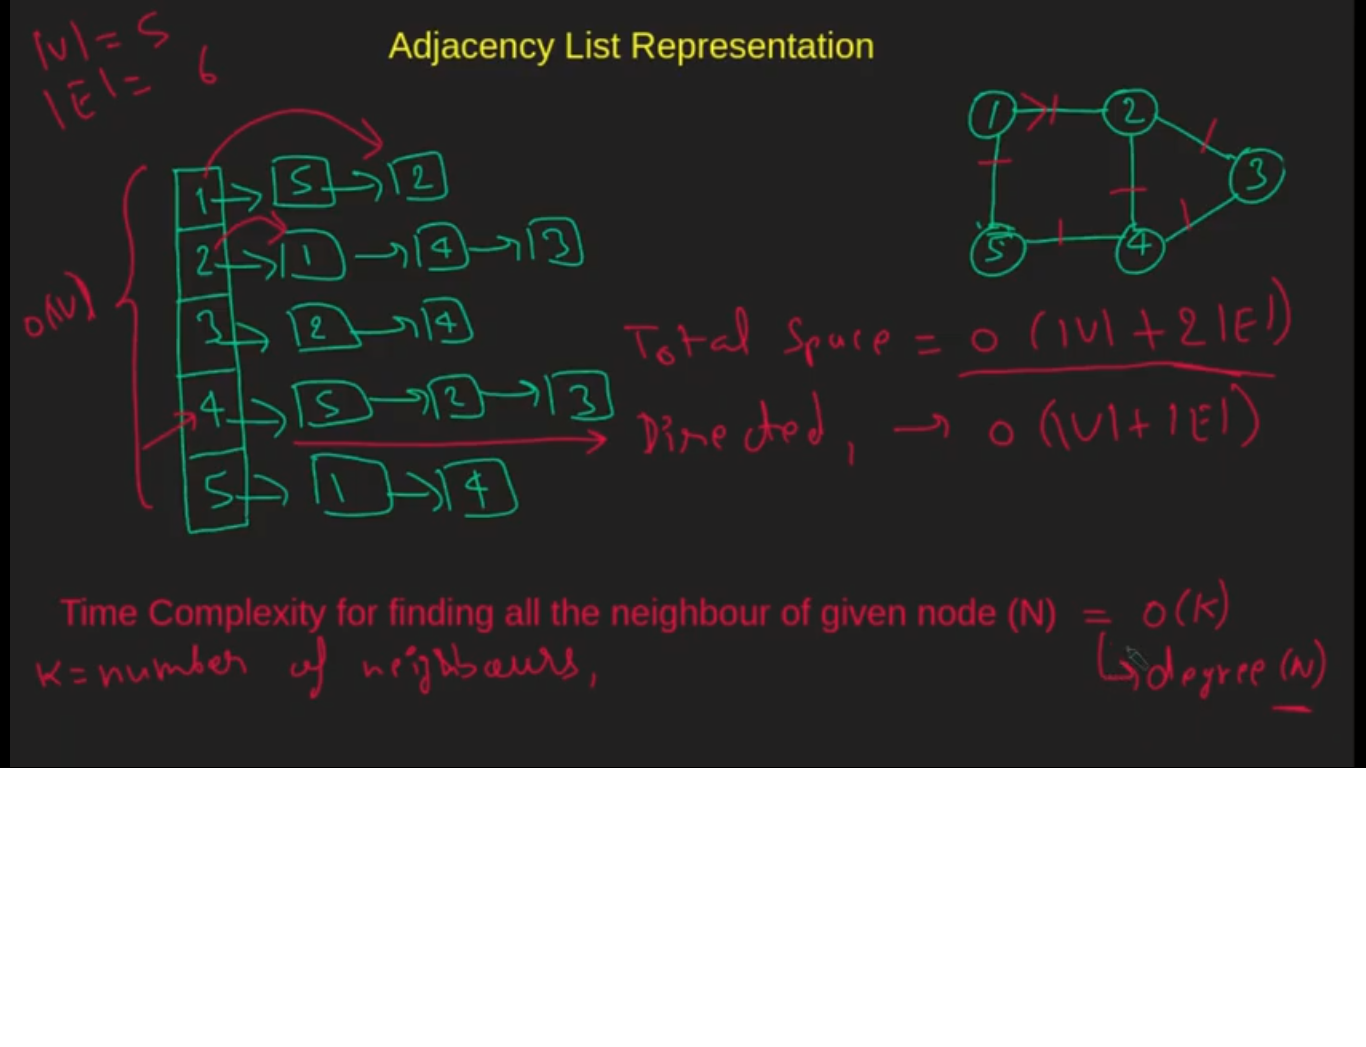 |V| = 5
|E| = 6
Adjacency List Representation
1 2 3 4 5
O(V)
1 → 5 → 2
2 → 1 → 4 → 3
3 → 2 → 4
4 → 5 → 2 → 3
5 → 1 → 4
Total Space = O(|V| + 2|E|)
Directed, → O(|V| + |E|)
Time Complexity for finding all the neighbour of given node (N) = O(K)
K = number of neighbours,
↳ degree (N)